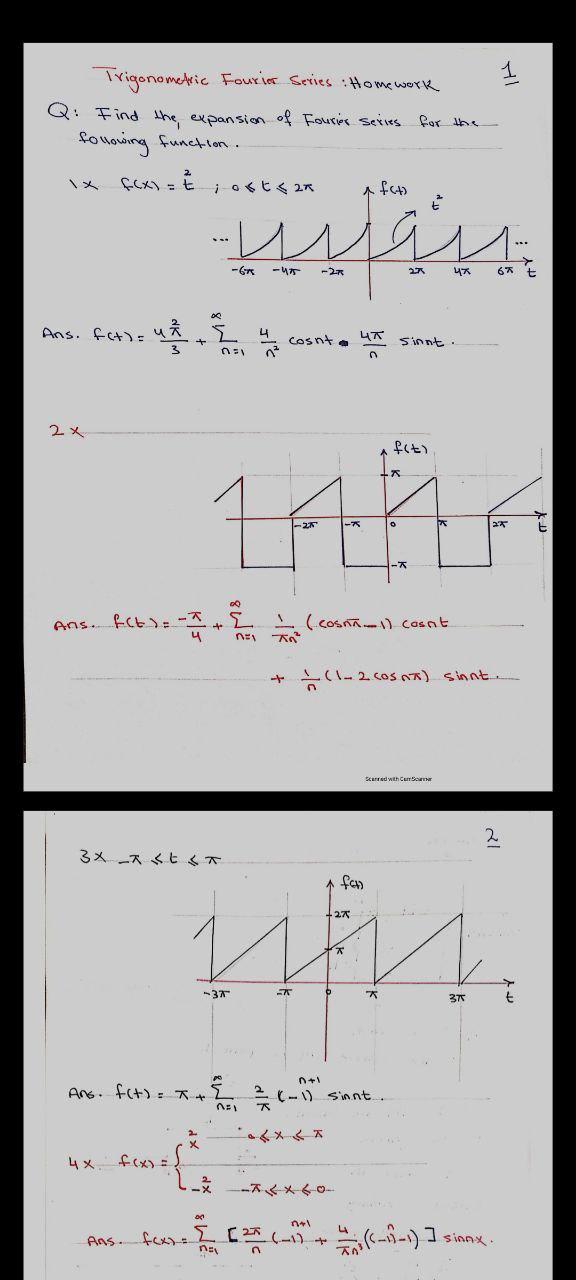 1
Trigonometric Fourier Series : Homework
Q: Find the expansion of Fourier Series for the
following function.
1x f(x) = t² ; 0 ≤ t ≤ 2π
f(t)
t²
... ...
-6π -4π -2π 2π 4π 6π t
Ans. f(t) = 4π²/3 + ∑_{n=1}^{∞} 4/n² cosnt - 4π/n sinnt.
2x
f(t)
π
-2π -π 0 π 2π t
-π
Ans. f(t) = -π/4 + ∑_{n=1}^{∞} 1/πn² (cosnπ - 1) cosnt
+ 1/n (1 - 2cosnπ) sinnt.
Scanned with CamScanner
2
3x -π ≤ t ≤ π
f(t)
2π
π
-3π -π 0 π 3π t
Ans. f(t) = π + ∑_{n=1}^{∞} 2/π (-1)^{n+1} sinnt.
x² 0 ≤ x ≤ π
4x f(x) = {
-x² -π ≤ x ≤ 0
Ans. f(x) = ∑_{n=1}^{∞} [ 2π/n (-1)^{n+1} + 4/πn³ ((-1)^n - 1) ] sinnx.